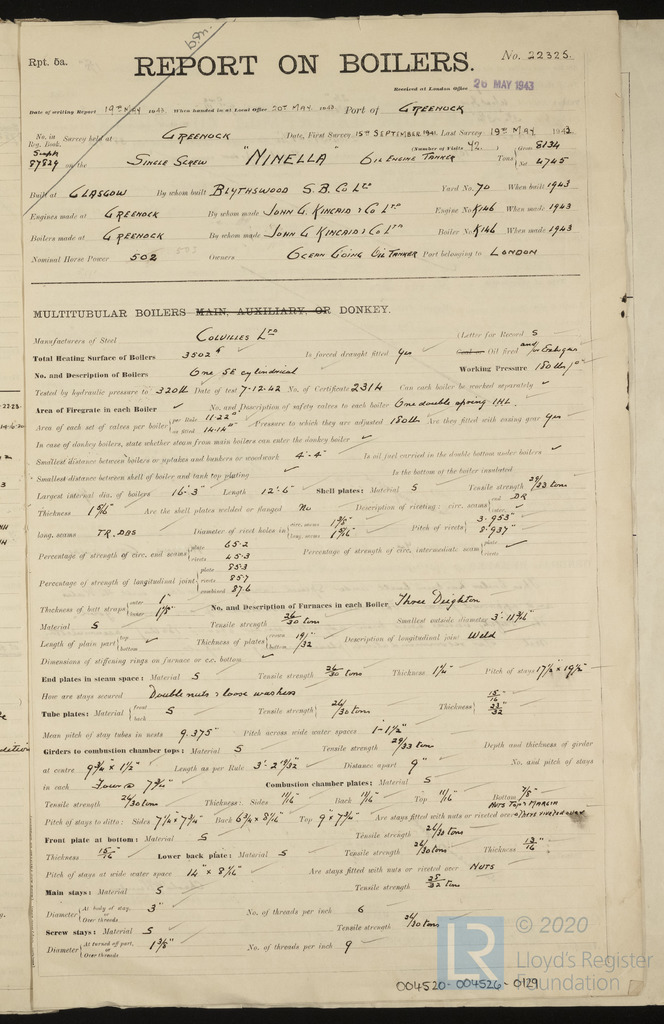 b.m.
Rpt. 5a.
REPORT ON BOILERS.
No. 22325.
Received at London Office 26 MAY 1943
Date of writing Report 19th May 1943 When handed in at Local Office 20th May 1943 Port of GREENOCK
No. in Reg. Book. Survey held at GREENOCK Date, First Survey 15th SEPTEMBER 1941 Last Survey 19th May 1943
(Number of Visits 42)
87829 on the SINGLE SCREW "NINELLA" OIL ENGINE TANKER Tons Gross 8134 Net 4745
Built at GLASGOW By whom built BLYTHSWOOD S.B. Co Ltd Yard No. 70 When built 1943
Engines made at GREENOCK By whom made JOHN G. KINCAID & Co Ltd Engine No. K146 When made 1943
Boilers made at GREENOCK By whom made JOHN G. KINCAID & Co Ltd Boiler No. K146 When made 1943
Nominal Horse Power 502 Owners OCEAN GOING OIL TANKER Port belonging to LONDON
MULTITUBULAR BOILERS MAIN, AUXILIARY, OR DONKEY.
Manufacturers of Steel COLVILLES Ltd (Letter for Record S
Total Heating Surface of Boilers 3502 Is forced draught fitted Yes Oil fired and/or Exh. gas
No. and Description of Boilers One SE cylindrical Working Pressure 180 lbs/
Tested by hydraulic pressure to 320 lb Date of test 7.12.42 No. of Certificate 2314 Can each boiler be worked separately ✓
Area of Firegrate in each Boiler ✓ No. and Description of safety valves to each boiler One double spring IHL
Area of each set of valves per boiler per Rule 11.22 as fitted 14.14 Pressure to which they are adjusted 180 lb Are they fitted with easing gear Yes
In case of donkey boilers, state whether steam from main boilers can enter the donkey boiler ✓
Smallest distance between boilers or uptakes and bunkers or woodwork 4'-4" Is oil fuel carried in the double bottom under boilers ✓
Smallest distance between shell of boiler and tank top plating ✓ Is the bottom of the boiler insulated ✓
Largest internal dia. of boilers 16'-3" Length 12'-6" Shell plates: Material S Tensile strength 29/33 tons
Thickness 1 5/16" Are the shell plates welded or flanged No Description of riveting: circ. seams end DR inter. ✓
long. seams TR.DBS Diameter of rivet holes in circ. seams 1 3/8" long. seams 1 5/16" Pitch of rivets 3.953" 8.937"
Percentage of strength of circ. end seams plate 65.2 rivets 45.3 Percentage of strength of circ. intermediate seam plate rivets ✓
Percentage of strength of longitudinal joint plate 85.3 rivets 85.7 combined 87.6
Thickness of butt straps outer 1" inner 1 1/8" No. and Description of Furnaces in each Boiler Three Deighton
Material S Tensile strength 26/30 tons Smallest outside diameter 3'-11 3/16"
Length of plain part top bottom ✓ Thickness of plates crown bottom 19/32" Description of longitudinal joint Weld
Dimensions of stiffening rings on furnace or c.c. bottom ✓
End plates in steam space: Material S Tensile strength 26/30 tons Thickness 1 1/4" Pitch of stays 17 1/2" x 19 1/2"
How are stays secured Double nuts & loose washers
Tube plates: Material front back S Tensile strength 26/30 tons Thickness 15/16 23/32
Mean pitch of stay tubes in nests 9.375" Pitch across wide water spaces 1-1 1/2"
Girders to combustion chamber tops: Material S Tensile strength 29/33 tons Depth and thickness of girder
at centre 9 3/4" x 1 1/2" Length as per Rule 3'-2 19/32" Distance apart 9" No. and pitch of stays
in each Four @ 7 3/4" Combustion chamber plates: Material S
Tensile strength 26/30 tons Thickness: Sides 11/16" Back 11/16" Top 11/16" Bottom 7/8"
Pitch of stays to ditto: Sides 7 1/4" x 7 3/4" Back 6 3/4" x 8 7/16" Top 9" x 7 3/4" Are stays fitted with nuts or riveted over
Front plate at bottom: Material S Tensile strength 26/30 tons
Thickness 15/16" Lower back plate: Material S Tensile strength 26/30 tons Thickness 13/16"
Pitch of stays at wide water space 14" x 8 7/16" Are stays fitted with nuts or riveted over NUTS
Main stays: Material S Tensile strength 28/32 tons
Diameter At body of stay, or Over threads 3" No. of threads per inch 6
Screw stays: Material S Tensile strength 26/30 tons
Diameter At turned off part, or Over threads 1 5/8" No. of threads per inch 9
004520-004526-0129
LR
© 2020
Lloyd's Register
Foundation